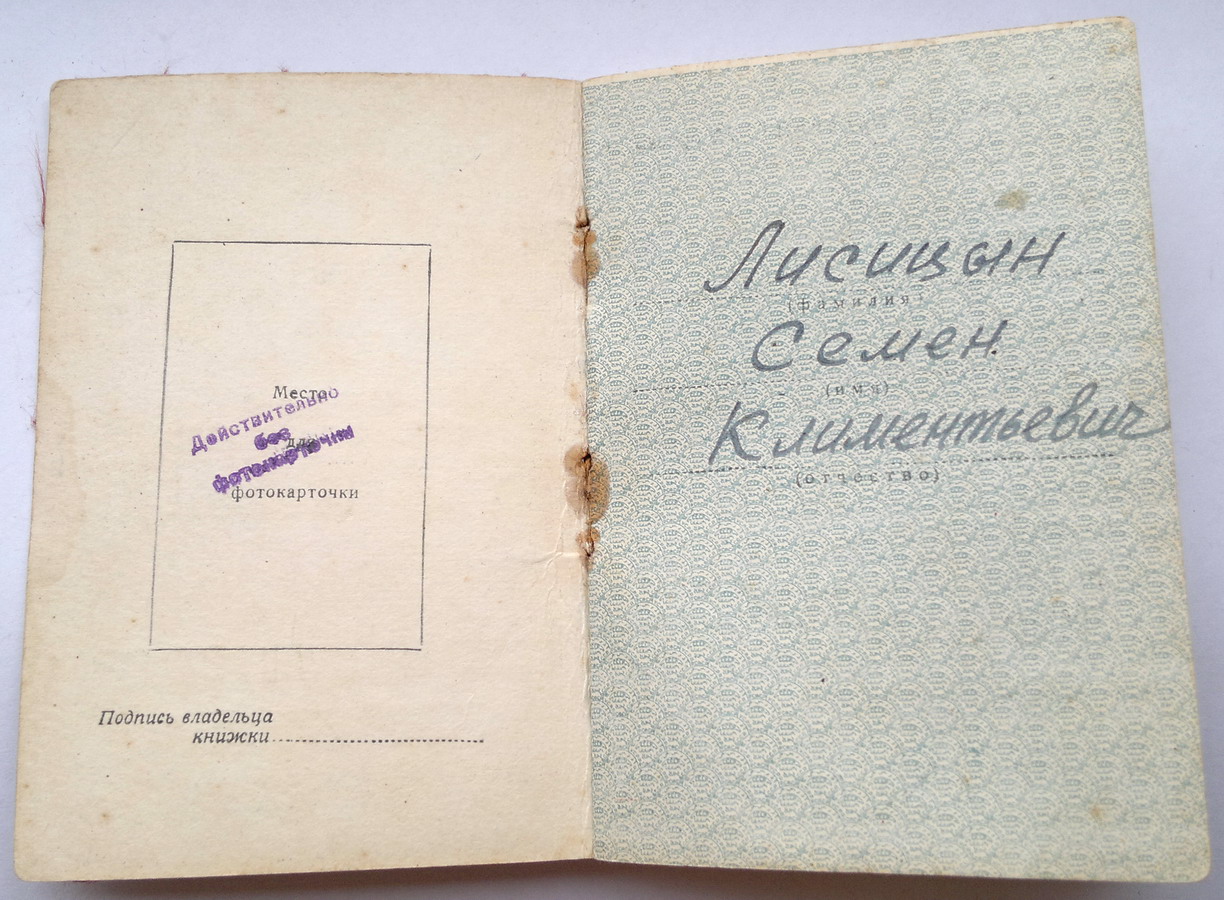 Место
для
фотокарточки
Действительно
без
фотокарточки
Подпись владельца
книжки
Лисицын
(фамилия)
Семен
(имя)
Климентьевич
(отчество)